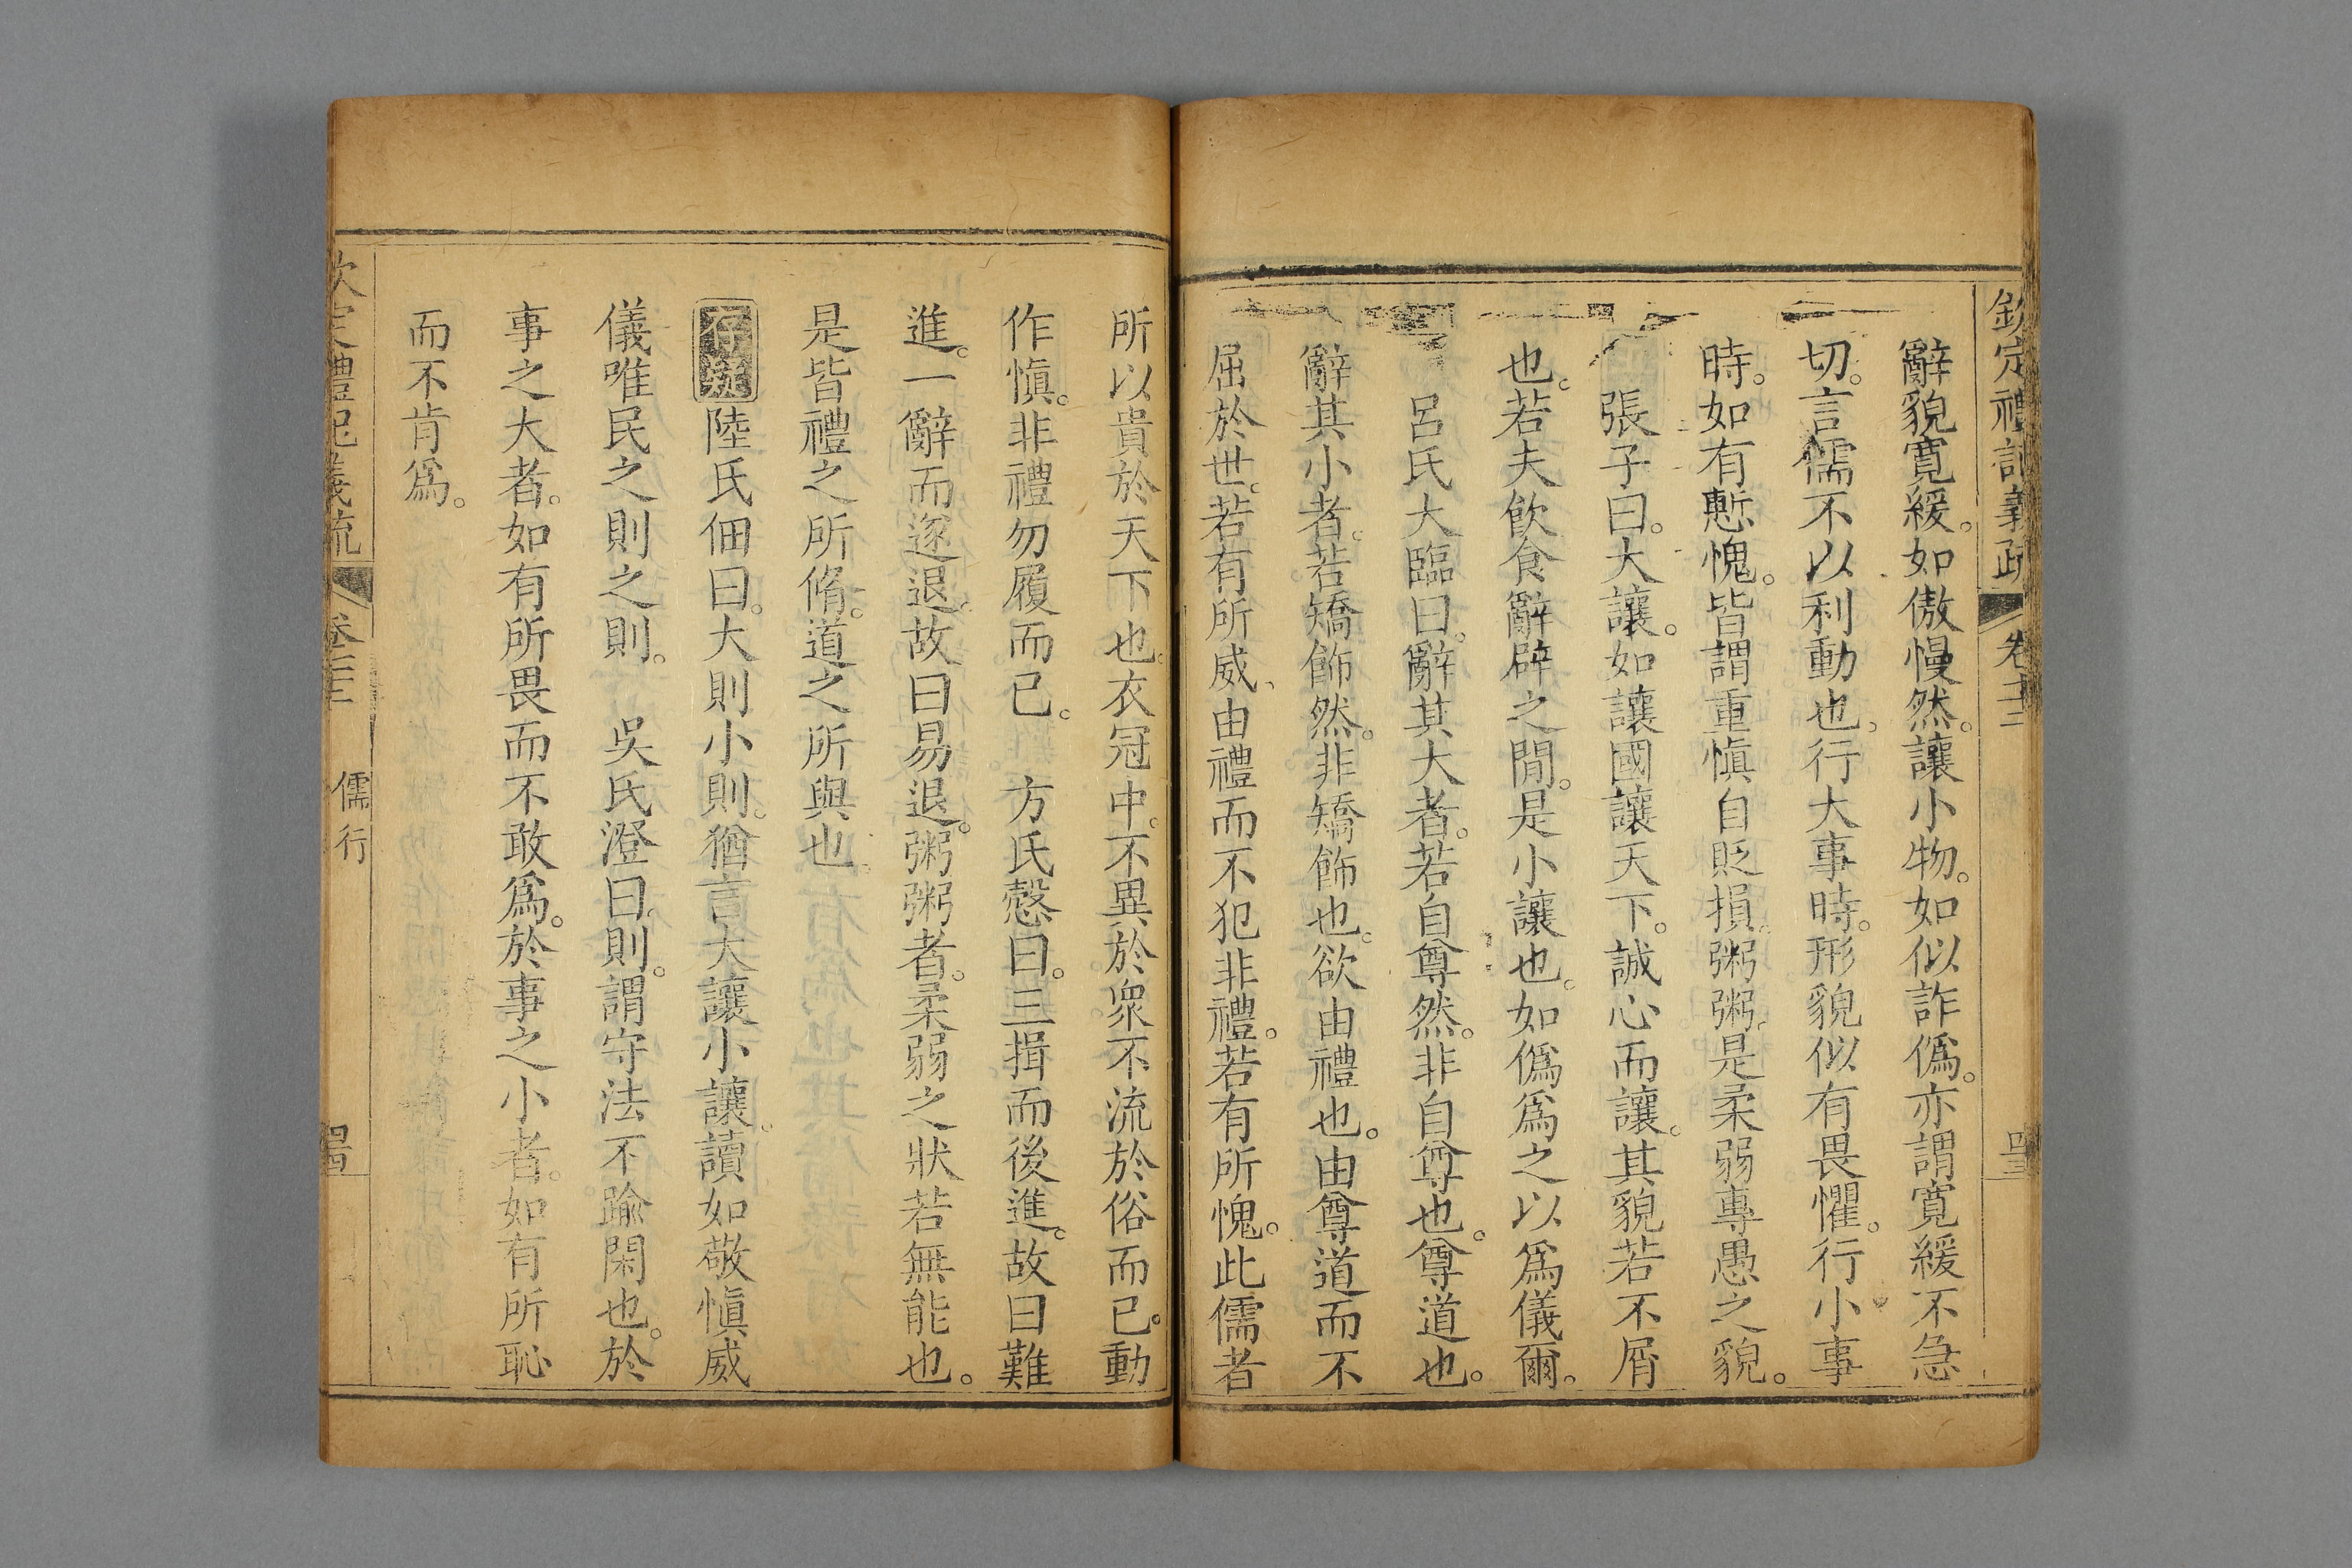 欽定禮記義疏 卷
辭貌寬緩。如傲慢然。讓小物。如似詐僞。亦謂寬緩不急
切。言儒不以利動也。行大事時。形貌似有畏懼。行小事
時。如有慙愧。皆謂重愼自貶損。粥粥。是柔弱專愚之貌。
張子曰。大讓。如讓國讓天下。誠心而讓。其貌若不屑
也。若夫飮食辭辟之閒。是小讓也。如僞爲之以爲儀爾。
呂氏大臨曰。辭其大者。若自尊然。非自尊也。尊道也。
辭其小者。若矯飾然。非矯飾也。欲由禮也。由尊道而不
屈於世。若有所威、由禮而不犯非禮。若有所愧。此儒者
所以貴於天下也。衣冠中。不異於衆不流於俗而已。動
作愼。非禮勿履而已。 方氏慤曰。三揖而後進。故曰難
進。一辭而遂退。故曰易退。粥粥者。柔弱之狀若無能也。
是皆禮之所脩。道之所與也。
存疑 陸氏佃曰。大則小則。猶言大讓小讓。讀如敬愼威
儀唯民之則之則。 吳氏澄曰。則。謂守法不踰閑也。於
事之大者。如有所畏而不敢爲。於事之小者。如有所恥
而不肯爲。
欽定禮記義疏 卷 儒行